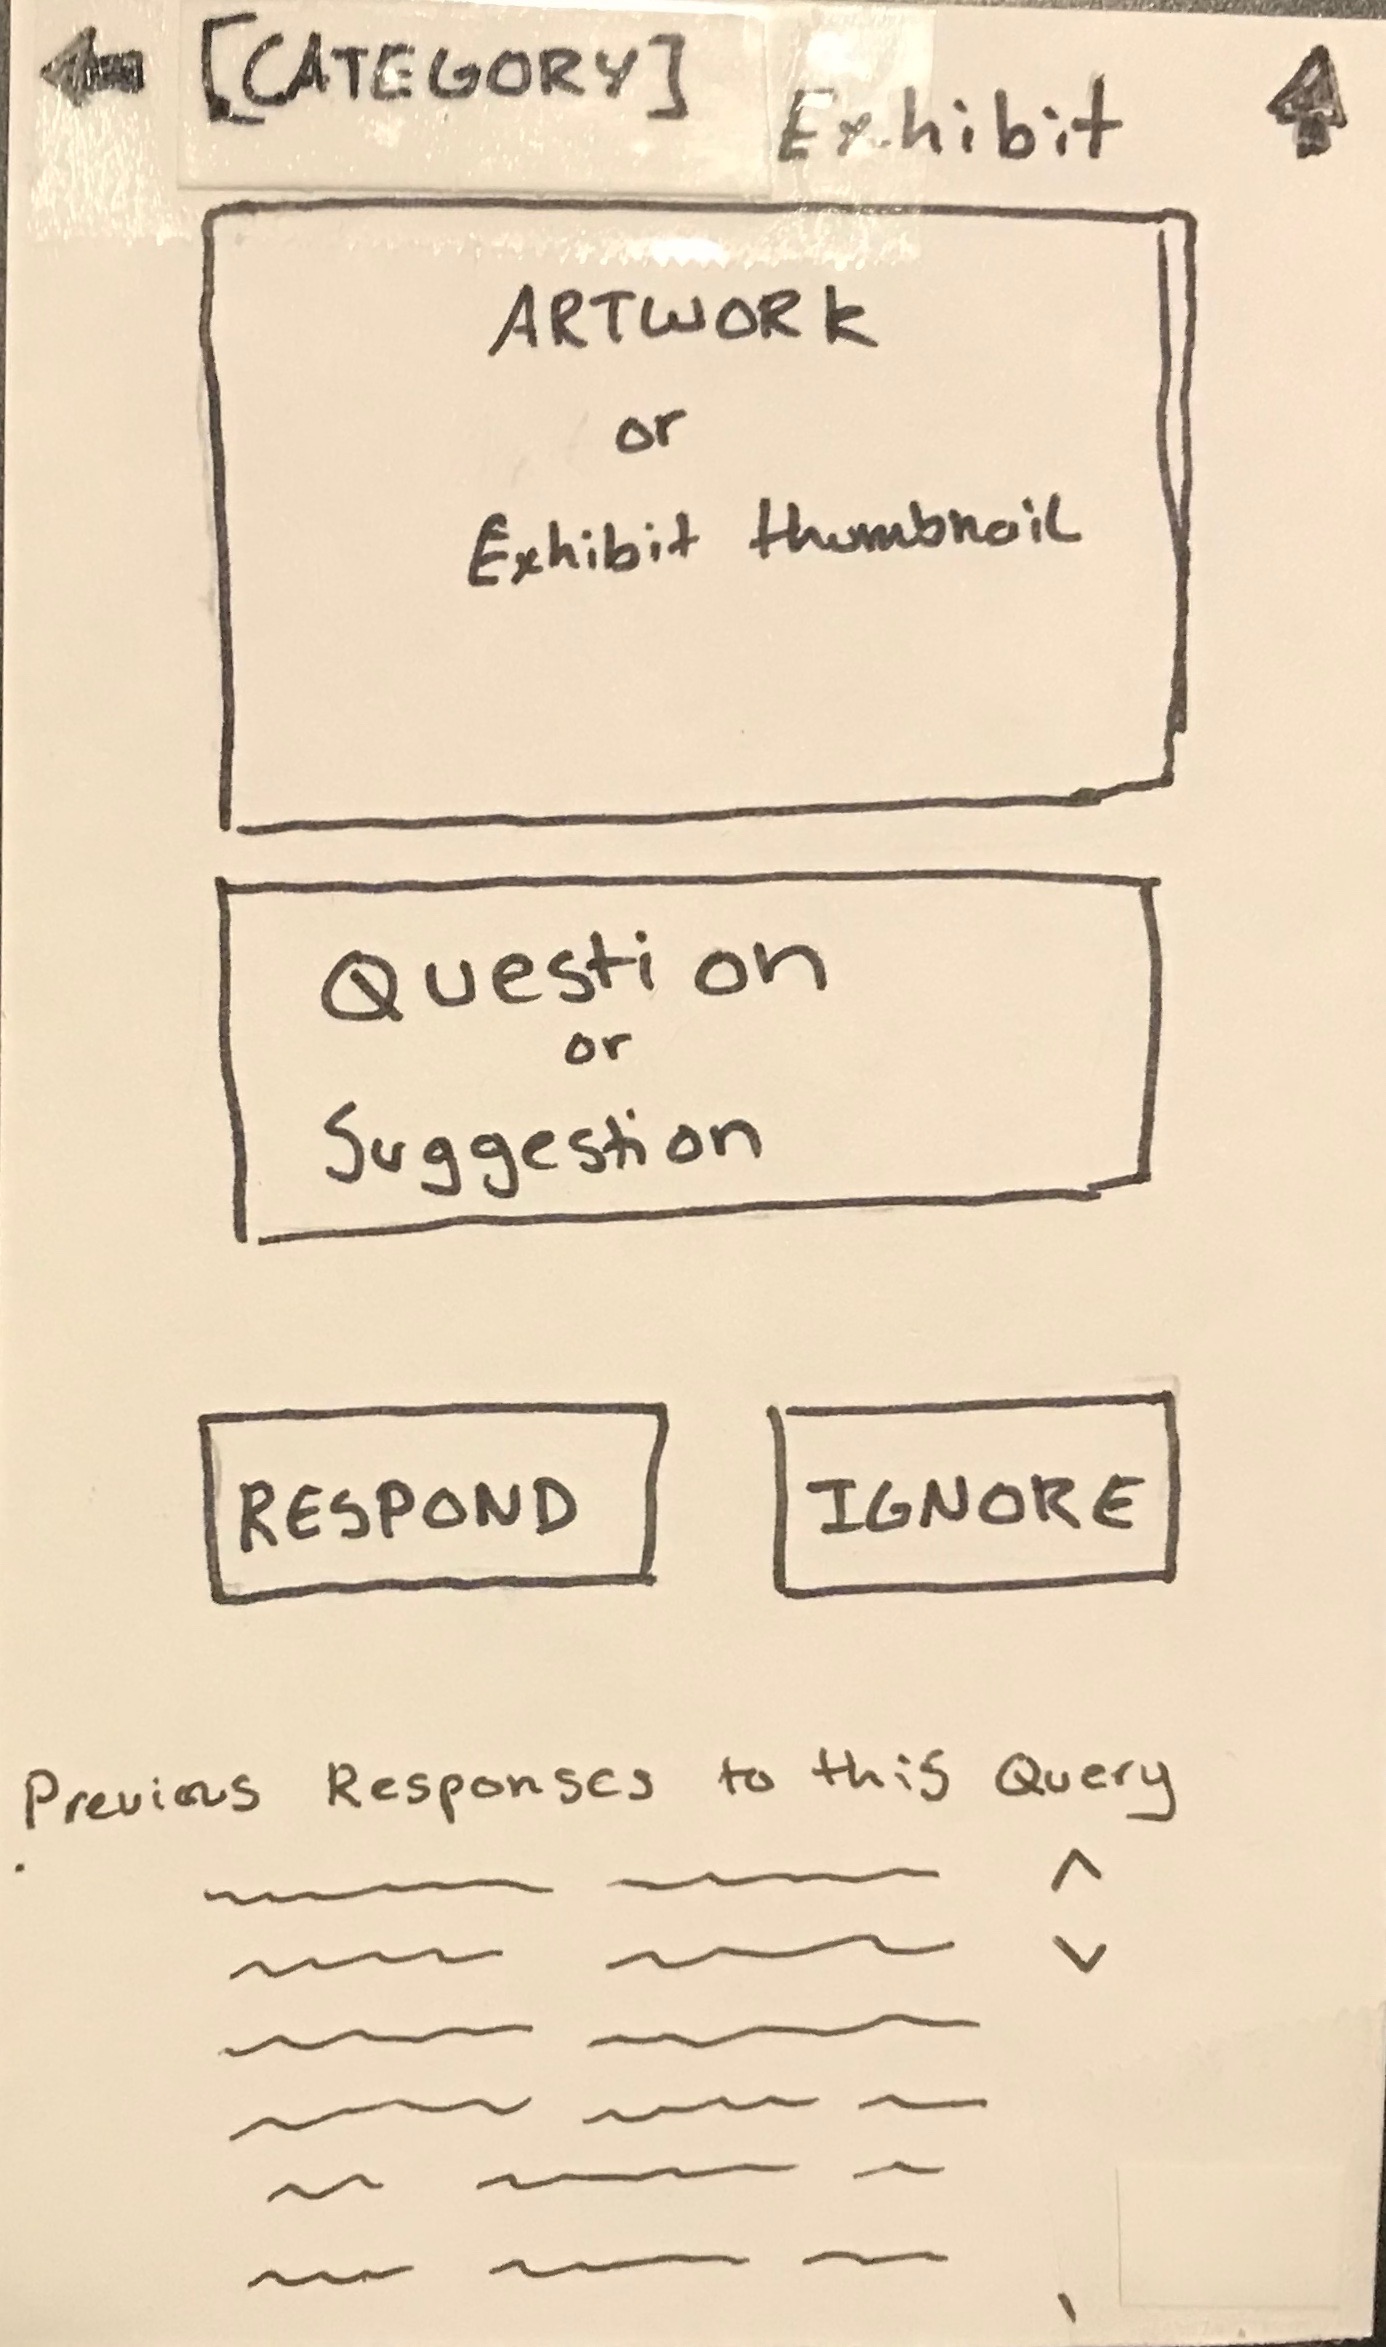 [CATEGORY] Exhibit
ARTWORK
or
Exhibit thumbnail
Question
or
Suggestion
RESPOND
IGNORE
Previous Responses to this Query